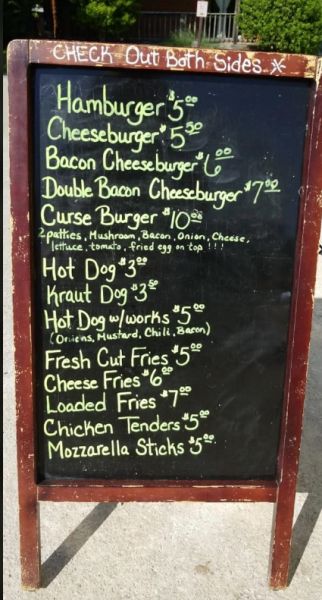 CHECK Out Both Sides
Hamburger $5.00
Cheeseburger $5.50
Bacon Cheeseburger $6.00
Double Bacon Cheeseburger $7.00
Curse Burger $10.00
2 patties, Mushroom, Bacon, Onion, Cheese,
lettuce, tomato, fried egg on top !!!!
Hot Dog $3.00
Kraut Dog $3.50
Hot Dog w/works $5.00
(Onions, Mustard, Chili, Bacon)
Fresh Cut Fries $5.00
Cheese Fries $6.00
Loaded Fries $7.00
Chicken Tenders $5.00
Mozzarella Sticks $5.00